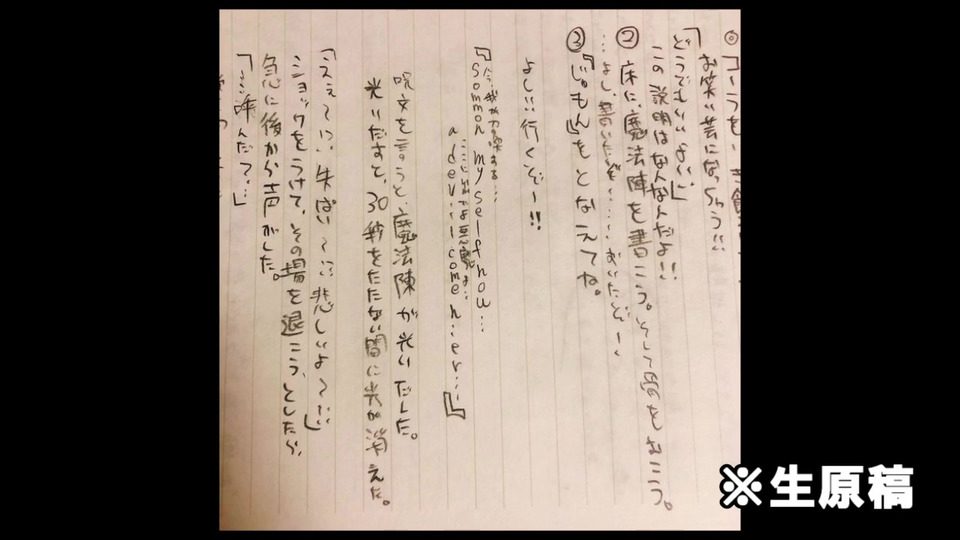 お笑い芸になっちゃう!!
「どうでもいいよい」
この説明はなんなんだよ!!
②床に、魔法陣を書こう。そして骨をおこう。
…よし、書いたぞ……おいたぞー、
③『じゅもん』をとなえてね。
よし!!行くぞー!!
『Sommon my self now…
a devil come h er…』
呪文を言うと、魔法陣が光いだした。
光いだすと、30秒をたたない間に光が消えた。
「ええ~!!失ぱい~!!悲しいよ~!!」
ショックをうけて、その場を退こう、としたら、
急に後から声がした。
「…呼んだ?…」
※生原稿